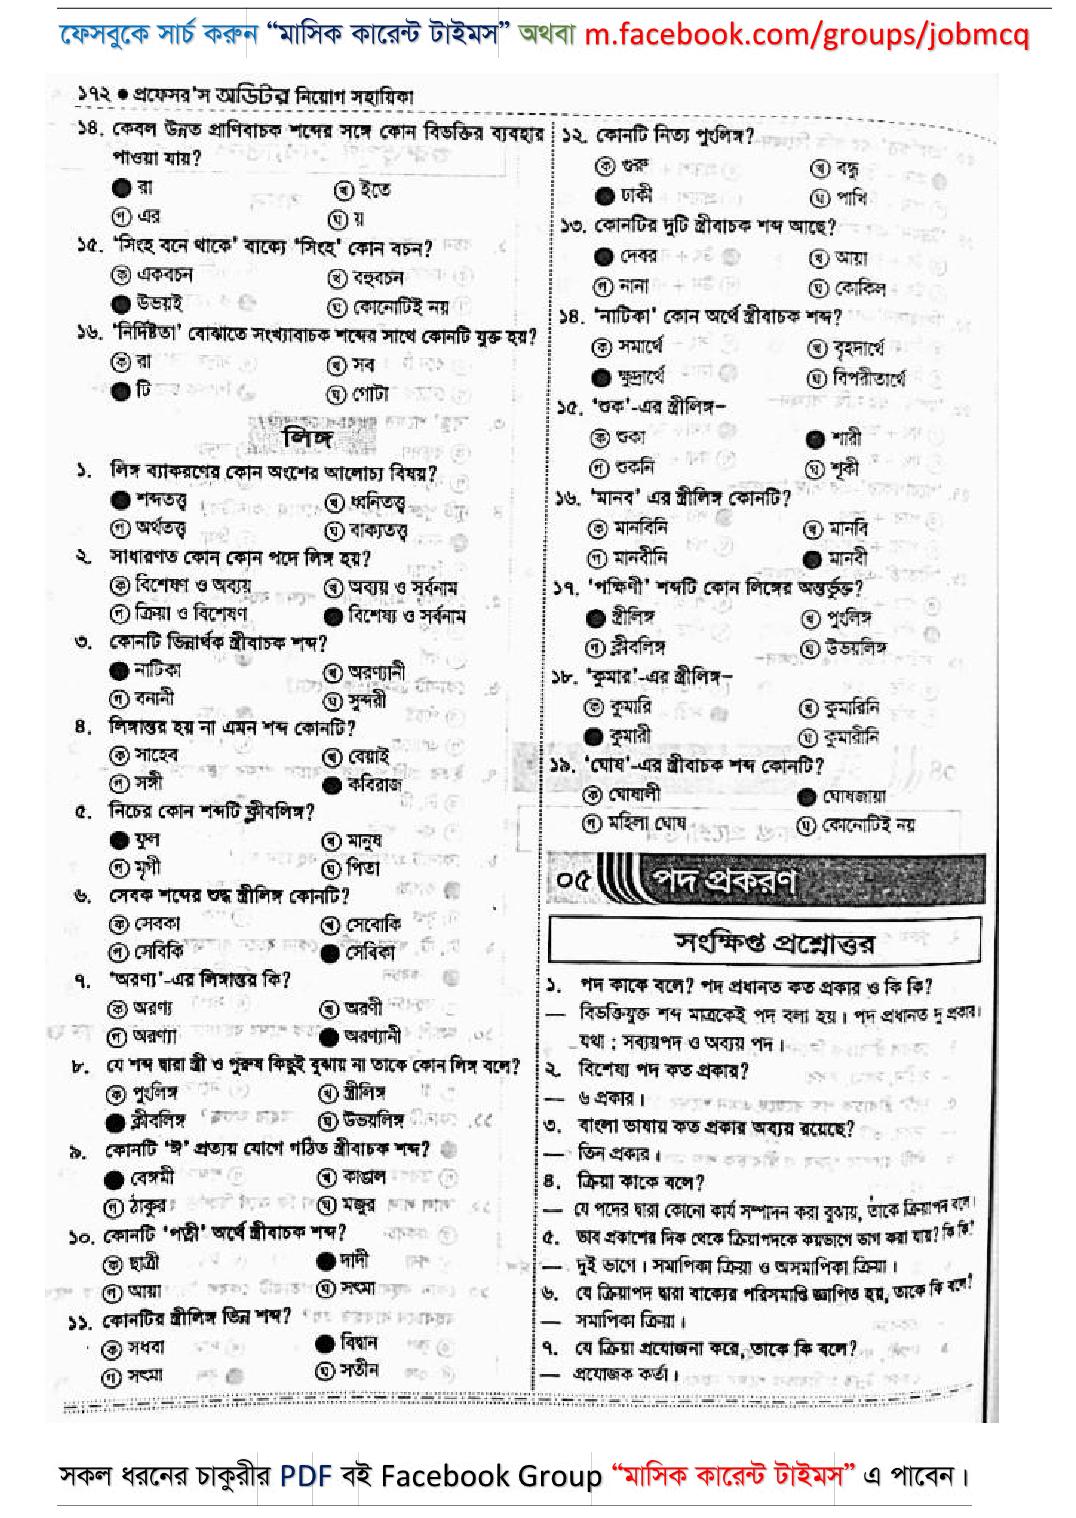 ফেসবুকে সার্চ করুন “মাসিক কারেন্ট টাইমস” অথবা m.facebook.com/groups/jobmcq
১৭২ ● প্রফেসর'স অডিটর নিয়োগ সহায়িকা
১৪. কেবল উন্নত প্রাণিবাচক শব্দের সঙ্গে কোন বিভক্তির ব্যবহার
পাওয়া যায়?
● রা ⓗ ইতে
ⓖ এর ঘ য়
১৫. ‘সিংহ বনে থাকে’ বাক্যে ‘সিংহ’ কোন বচন?
ক একবচন খ বহুবচন
● উভয়ই ঘ কোনোটিই নয়
১৬. ‘নির্দিষ্টতা’ বোঝাতে সংখ্যাবাচক শব্দের সাথে কোনটি যুক্ত হয়?
ক রা খ সব
● টি ঘ গোটা
লিঙ্গ
১. লিঙ্গ ব্যাকরণের কোন অংশের আলোচ্য বিষয়?
● শব্দতত্ত্ব খ ধ্বনিতত্ত্ব
গ অর্থতত্ত্ব ঘ বাক্যতত্ত্ব
২. সাধারণত কোন কোন পদে লিঙ্গ হয়?
ক বিশেষণ ও অব্যয় খ অব্যয় ও সর্বনাম
গ ক্রিয়া ও বিশেষণ ● বিশেষ্য ও সর্বনাম
৩. কোনটি ভিন্নার্থক স্ত্রীবাচক শব্দ?
● নাটিকা খ অরণ্যানী
গ বনানী ঘ সুন্দরী
৪. লিঙ্গান্তর হয় না এমন শব্দ কোনটি?
ক সাহেব খ বেয়াই
গ সঙ্গী ● কবিরাজ
৫. নিচের কোন শব্দটি ক্লীবলিঙ্গ?
● ফুল খ মানুষ
গ মৃগী ঘ পিতা
৬. সেবক শব্দের শুদ্ধ স্ত্রীলিঙ্গ কোনটি?
ক সেবকা খ সেবোকি
গ সেবিকি ● সেবিকা
৭. ‘অরণ্য’-এর লিঙ্গান্তর কি?
ক অরণ্য খ অরণী
গ অরণ্যা ● অরণ্যানী
৮. যে শব্দ দ্বারা স্ত্রী ও পুরুষ কিছুই বুঝায় না তাকে কোন লিঙ্গ বলে?
ক পুংলিঙ্গ খ স্ত্রীলিঙ্গ
● ক্লীবলিঙ্গ ঘ উভয়লিঙ্গ
৯. কোনটি ‘ঈ’ প্রত্যয় যোগে গঠিত স্ত্রীবাচক শব্দ?
● বেঙ্গমী খ কাঙাল
গ ঠাকুর ঘ মজুর
১০. কোনটি ‘পত্নী’ অর্থে স্ত্রীবাচক শব্দ?
ক ছাত্রী ● দাদী
গ আয়া ঘ সৎমা
১১. কোনটির স্ত্রীলিঙ্গ ভিন্ন শব্দ?
ক সধবা ● বিদ্বান
গ সৎমা ঘ সতীন
১২. কোনটি নিত্য পুংলিঙ্গ?
ক গুরু খ বন্ধু
● ঢাকী ঘ পাখি
১৩. কোনটির দুটি স্ত্রীবাচক শব্দ আছে?
● দেবর খ আয়া
গ নানা ঘ কোকিল
১৪. ‘নাটিকা’ কোন অর্থে স্ত্রীবাচক শব্দ?
ক সমার্থে খ বৃহদার্থে
● ক্ষুদ্রার্থে ঘ বিপরীতার্থে
১৫. ‘শুক’-এর স্ত্রীলিঙ্গ–
ক শুকা ● শারী
গ শুকনি ঘ শূকী
১৬. ‘মানব’ এর স্ত্রীলিঙ্গ কোনটি?
ক মানবিনি খ মানবি
গ মানবীনি ● মানবী
১৭. ‘পক্ষিণী’ শব্দটি কোন লিঙ্গের অন্তর্ভুক্ত?
● স্ত্রীলিঙ্গ খ পুংলিঙ্গ
গ ক্লীবলিঙ্গ ঘ উভয়লিঙ্গ
১৮. ‘কুমার’-এর স্ত্রীলিঙ্গ–
ক কুমারি খ কুমারিনি
● কুমারী ঘ কুমারীনি
১৯. ‘ঘোষ’-এর স্ত্রীবাচক শব্দ কোনটি?
ক ঘোষালী ● ঘোষজায়া
গ মহিলা ঘোষ ঘ কোনোটিই নয়
০৫ পদ প্রকরণ
সংক্ষিপ্ত প্রশ্নোত্তর
১. পদ কাকে বলে? পদ প্রধানত কত প্রকার ও কি কি?
— বিভক্তিযুক্ত শব্দ মাত্রকেই পদ বলা হয়। পদ প্রধানত দু প্রকার।
যথা : সব্যয়পদ ও অব্যয় পদ।
২. বিশেষ্য পদ কত প্রকার?
— ৬ প্রকার।
৩. বাংলা ভাষায় কত প্রকার অব্যয় রয়েছে?
— তিন প্রকার।
৪. ক্রিয়া কাকে বলে?
— যে পদের দ্বারা কোনো কার্য সম্পাদন করা বুঝায়, তাকে ক্রিয়াপদ বলে।
৫. ভাব প্রকাশের দিক থেকে ক্রিয়াপদকে কয়ভাগে ভাগ করা যায়? কি কি?
— দুই ভাগে। সমাপিকা ক্রিয়া ও অসমাপিকা ক্রিয়া।
৬. যে ক্রিয়াপদ দ্বারা বাক্যের পরিসমাপ্তি জ্ঞাপিত হয়, তাকে কি বলে?
— সমাপিকা ক্রিয়া।
৭. যে ক্রিয়া প্রযোজনা করে, তাকে কি বলে?
— প্রযোজক কর্তা।
সকল ধরনের চাকুরীর PDF বই Facebook Group “মাসিক কারেন্ট টাইমস” এ পাবেন।